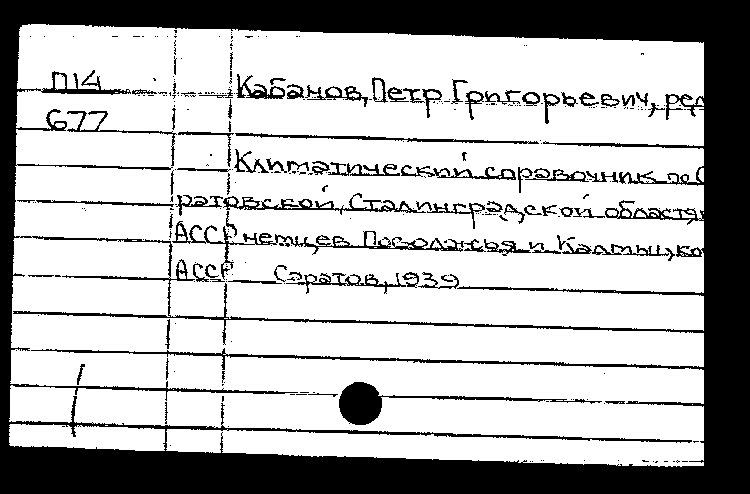 П14
677
Кабанов, Петр Григорьевич, ред
Климатический справочник по С
ратовской, Сталинградской областям
АССР немцев Поволжья и Калмыцко
АССР Саратов, 1939